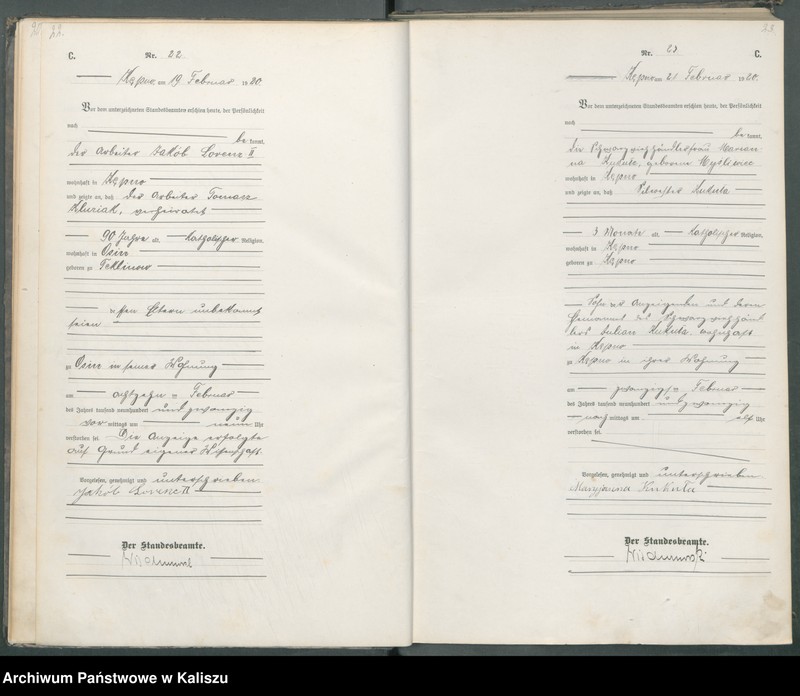 22.
C.
Nr. 22.
Kępno am 19 Februar 1920.
Vor dem unterzeichneten Standesbeamten erschien heute, der Persönlichkeit
nach
be kannt,
der Arbeiter Jakób Lorenc II
wohnhaft in Kępno
und zeigte an, daß der Arbeiter Tomasz
verheiratet
90 Jahre alt, katholischer Religion,
wohnhaft in Osin
geboren zu
dessen Eltern unbekannt
seien
zu Osin in seiner Wohnung
am achtzehn ten Februar
des Jahres tausend neunhundert und zwanzig
vor mittags um neun Uhr
verstorben sei. Die Anzeige erfolgte
auf Grund eigener Wissenschaft.
Vorgelesen, genehmigt und unterschrieben
Jakób Lorenc II
Der Standesbeamte.
33
Nr. 23
C.
Kępno am 21 Februar 1920.
Vor dem unterzeichneten Standesbeamten erschien heute, der Persönlichkeit
nach
be kannt,
die Schwarzviehhändlerfrau Marian
na Kukuła, geborene
wohnhaft in Kępno
und zeigte an, daß Sylvester Kukuła
3 Monate alt, katholischer Religion,
wohnhaft in Kępno
geboren zu Kępno
Sohn der Anzeigenden und deren
Ehemannes des Schwarzviehhänd
lers Julian Kukuła, wohnhaft
in Kępno
zu Kępno in ihrer Wohnung
am zwanzigsten Februar
des Jahres tausend neunhundert und zwanzig
nach mittags um elf Uhr
verstorben sei.
Vorgelesen, genehmigt und unterschrieben
Maryjanna Kukuła
Der Standesbeamte.
Archiwum Państwowe w Kaliszu